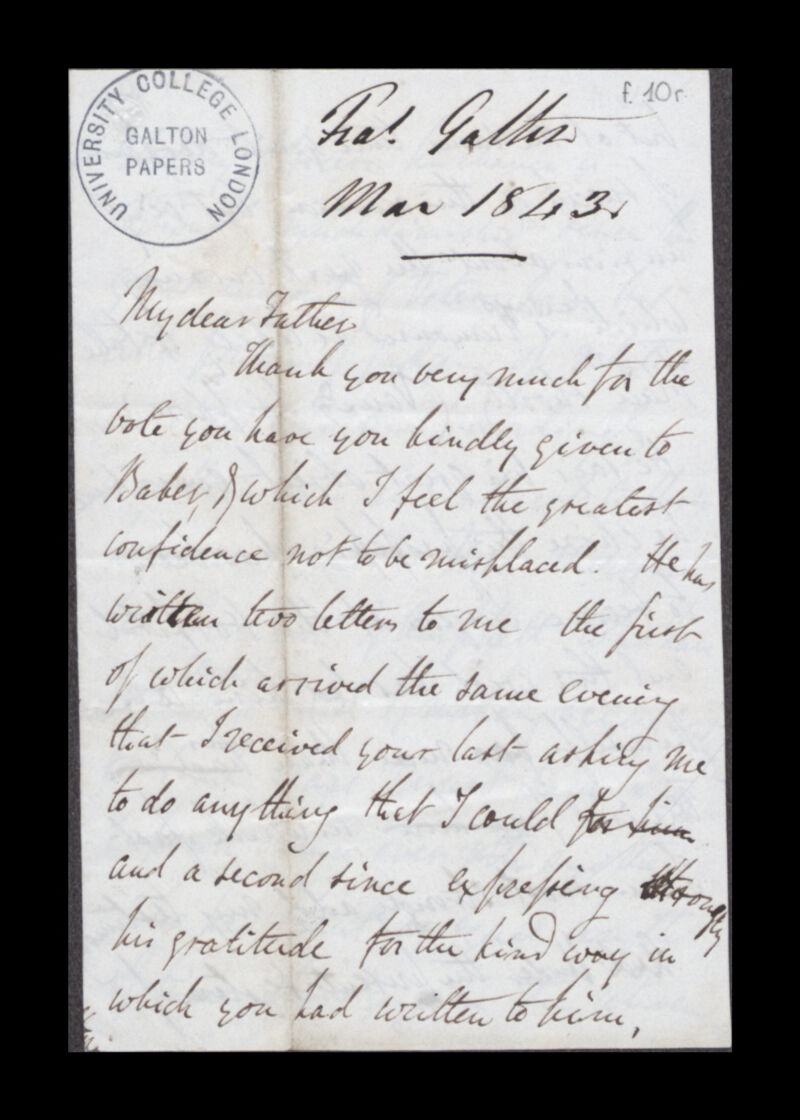 UNIVERSITY COLLEGE LONDON
GALTON
PAPERS
f. 10r
Fras. Galton
Mar 1843.
My dear Father
Thank you very much for the
vote you have you kindly given to
Baber, & which I feel the greatest
confidence not to be misplaced. He has
written two letters to me the first
of which arrived the same evening
that I received your last asking me
to do anything that I could for him
and a second since expressing strongly
his gratitude for the kind way in
which you had written to him,